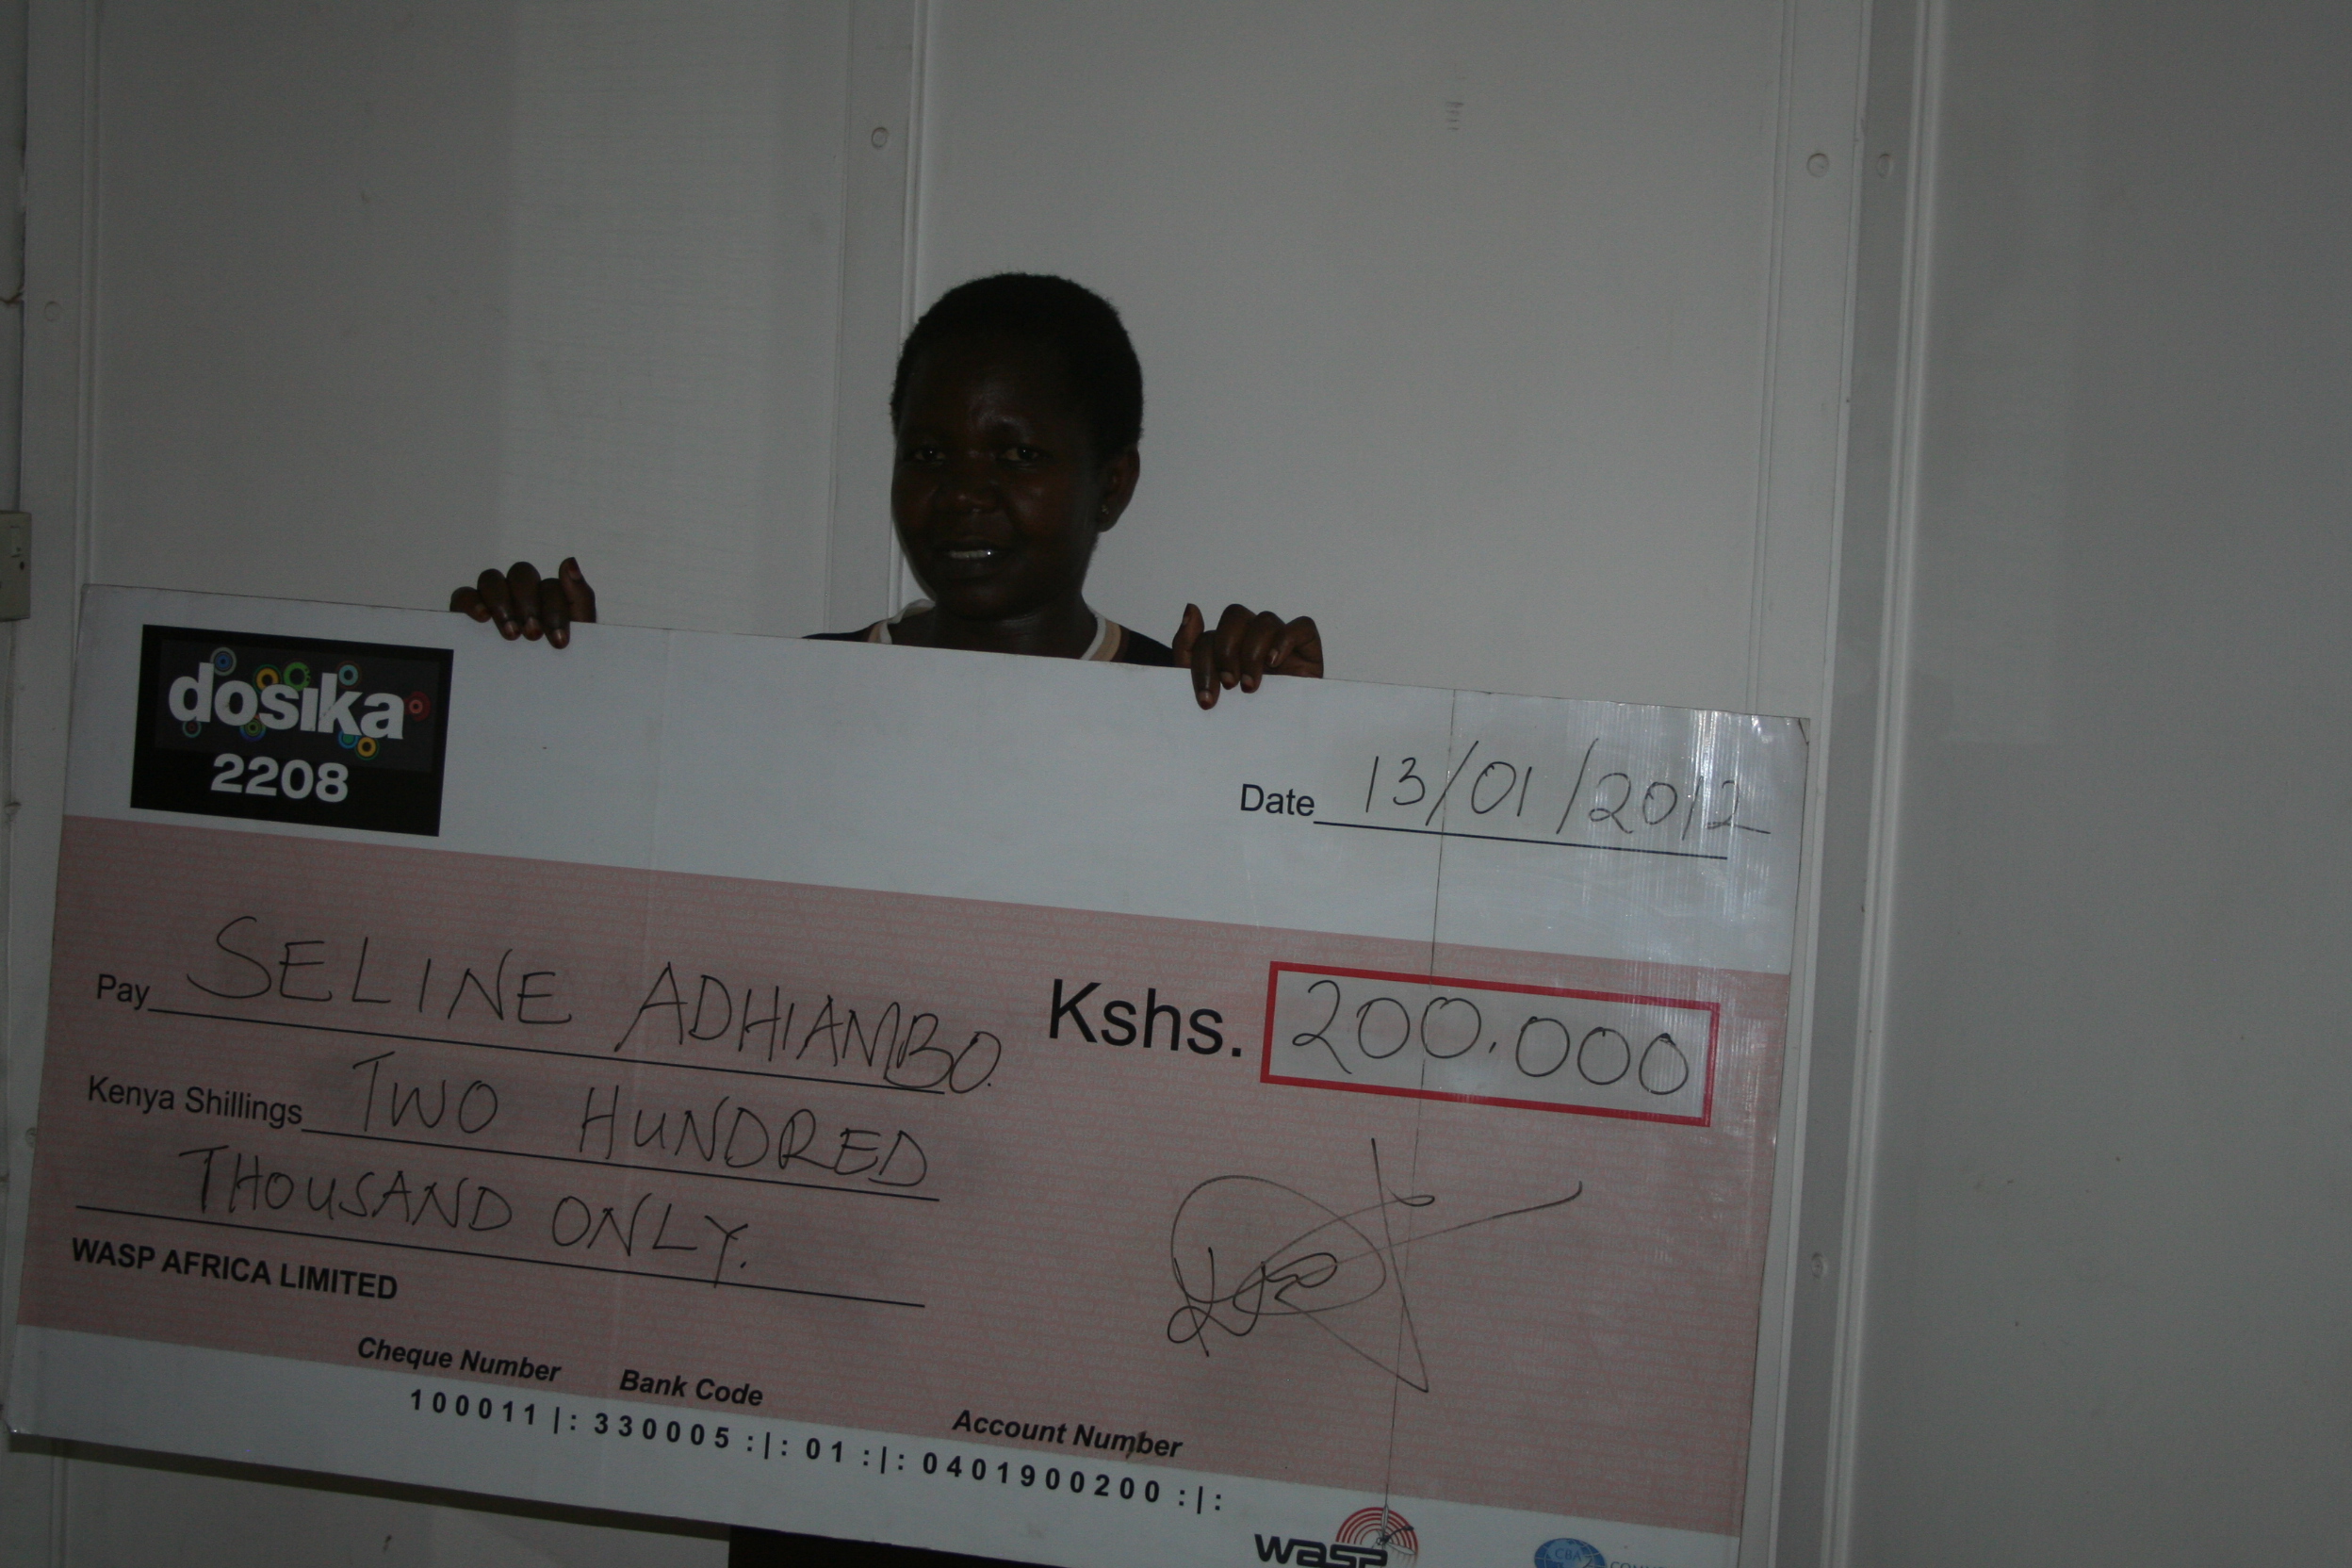 dosika
2208
Date 13/01/2012
Pay SELINE ADHIAMBO.
Kshs. 200.000
Kenya Shillings TWO HUNDRED
THOUSAND ONLY.
WASP AFRICA LIMITED
Cheque Number Bank Code Account Number
100011 |: 330005 :|: 01 :|: 0401900200 :|:
wasp
CBA